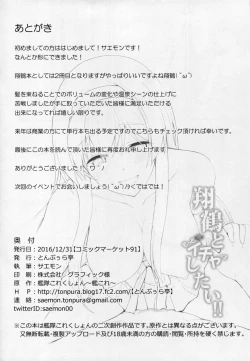 あとがき
初めましての方ははじめまして！サエモンです！
なんとか形にできました！
翔鶴本としては2冊目となりますがやっぱりいいですよね翔鶴！´ω`)
髪を束ねることでのボリュームの変化や温泉シーンの仕上げに
苦戦しましたが手に取っていただいた皆様に満足いただける
出来になってれば嬉しい限りです。
来年は商業の方にて単行本も出る予定ですのでこちらもチェック頂ければ幸いです。
最後にこの本を読んで頂いた皆様に再度お礼申し上げます
ありがとうございました！
次回のイベントでお会いしましょう(´ω`)ﾉｼではでは！
翔鶴とイチャイチャしたい!!
奥 付
発行日：2016/12/31【コミックマーケット91】
発行：とんぷぅら亭
執筆：サエモン
印刷：株式会社 グラフィック様
原作：艦隊これくしょん～艦これ～
H P：http://tonpura.blog17.fc2.com/【とんぷぅら亭】
連絡：saemon.tonpura@gmail.com
twitterID:saemon00
※この本は艦隊これくしょんの二次創作作品です。原作とは異なる点がございます。
又無断転載・複製アップロード及び18歳未満の方の購読・閲覧、所持を硬く禁じます。